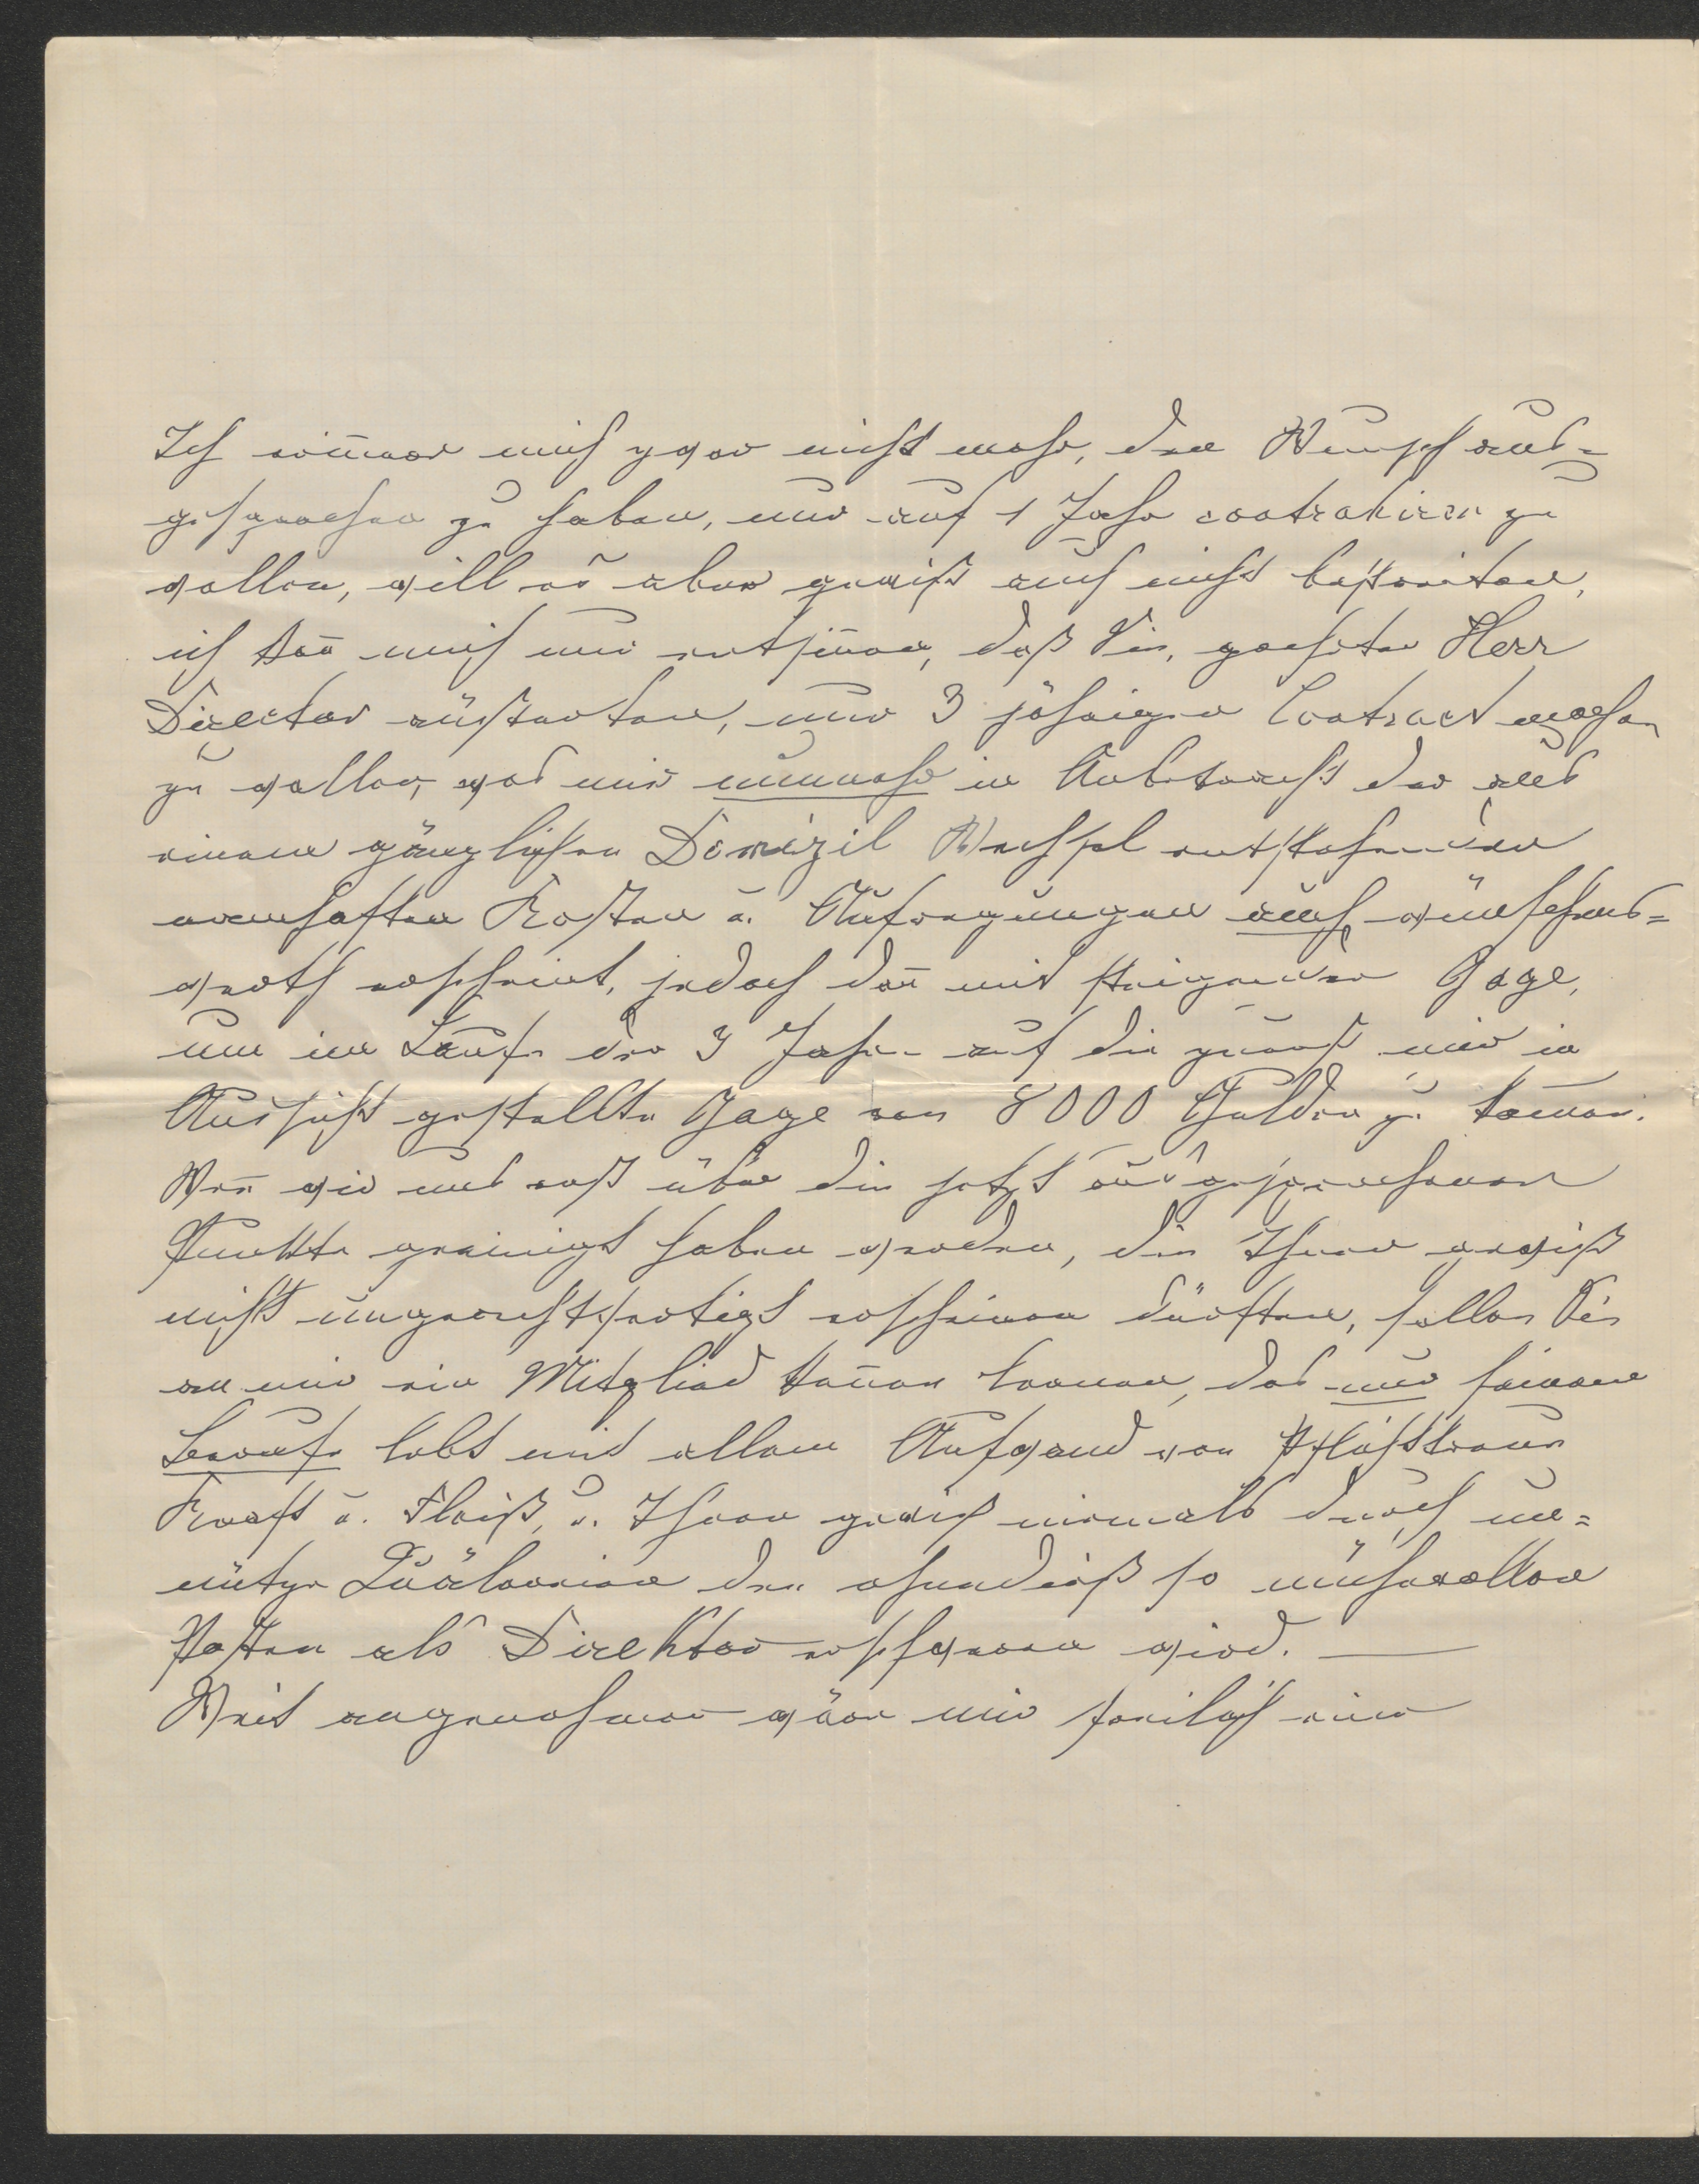 Ich erinnere mich zwar nicht mehr, den Wunsch aus=
gesprochen zu haben, nur auf 1 Jahr contrahiren zu
wollen, will es aber gewiß auch nicht bestreiten,
ich kan̄ mich nur entsin̄en, daß Sie, geehrter Herr
Director äußerten, nur 3 jährigen Contract machen
zu wollen, was mir nunmehr in Anbetracht der aus
einem gänzlichen Domizil Wechsel entstehenden
namhaften Kosten u. Aufregungen auch wünschens=
werth erscheint, jedoch dan̄ mit steigender Gage,
um im Laufe der 3 Jahre auf die zuerst mir in
Aussicht gestellte Gage von 8000 Gulden zu kom̄en.
Wen̄ wir uns erst über die jetzt ausgesprochenen
Punkte geeinigt haben werden, die Ihnen gewiß
nicht ungerechtfertigt erscheinen dürften, sollen Sie
an mir ein Mitglied ken̄en lernen, das nur seinem
Berufe lebt mit allem Aufwand von Pflichttreue
Kraft u. Fleiß, u. Ihnen gewiß niemals durch un=
nütze Quälereien den ohnedieß so mühevollen
Posten als Direktor erschweren wird. —
Weit angenehmer wäre mir freilich eine